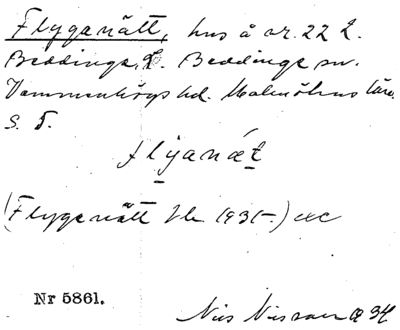 Flyganätt, hus å nr. 22 L.
Beddinge, L. Beddinge sn.
Vemmenhögs hd. Malmöhus län.
s. 5.
flyanæt
(Flyganätt Jb. 1931-)
Nr 5861.
Nils Nilsson